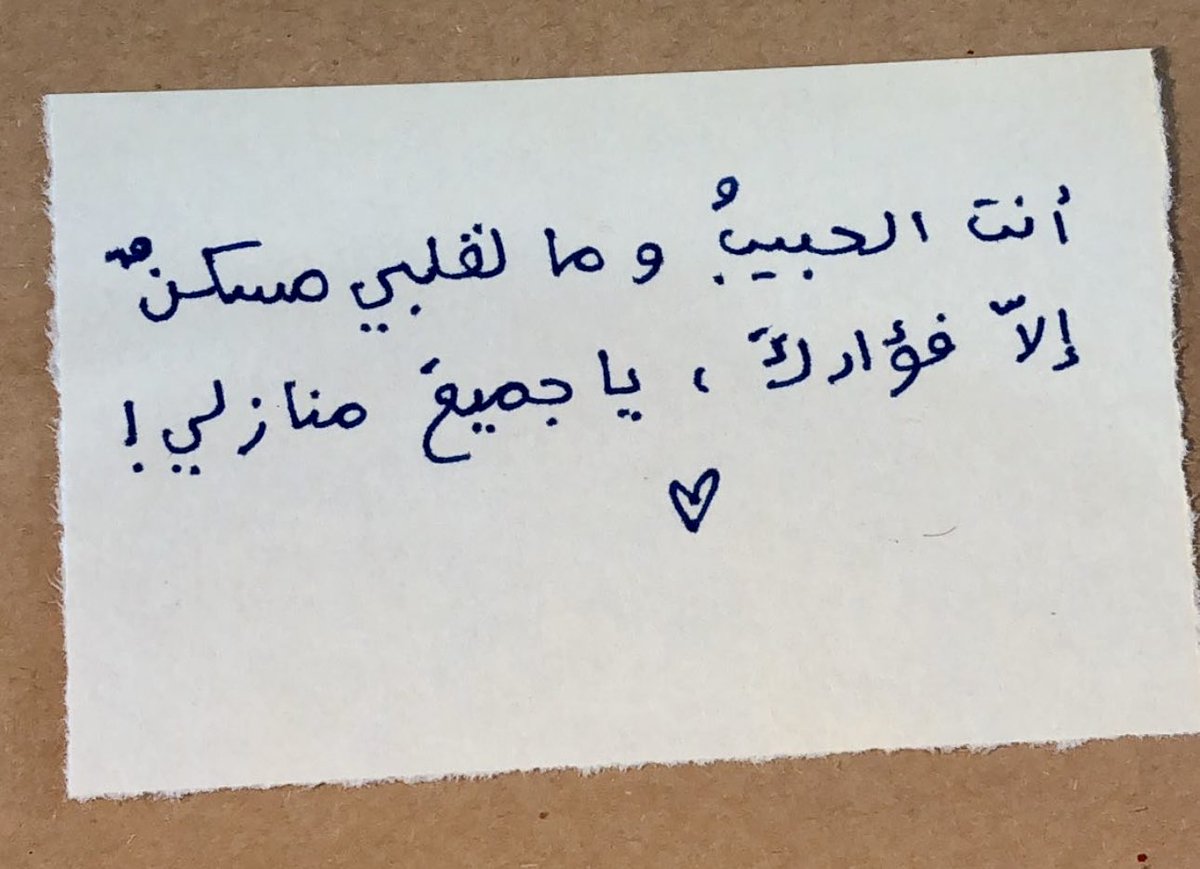 أنت الحبيبُ وما لقلبي مسكنٌ
إلاّ فؤادكَ، يا جميعَ منازلي!
♡